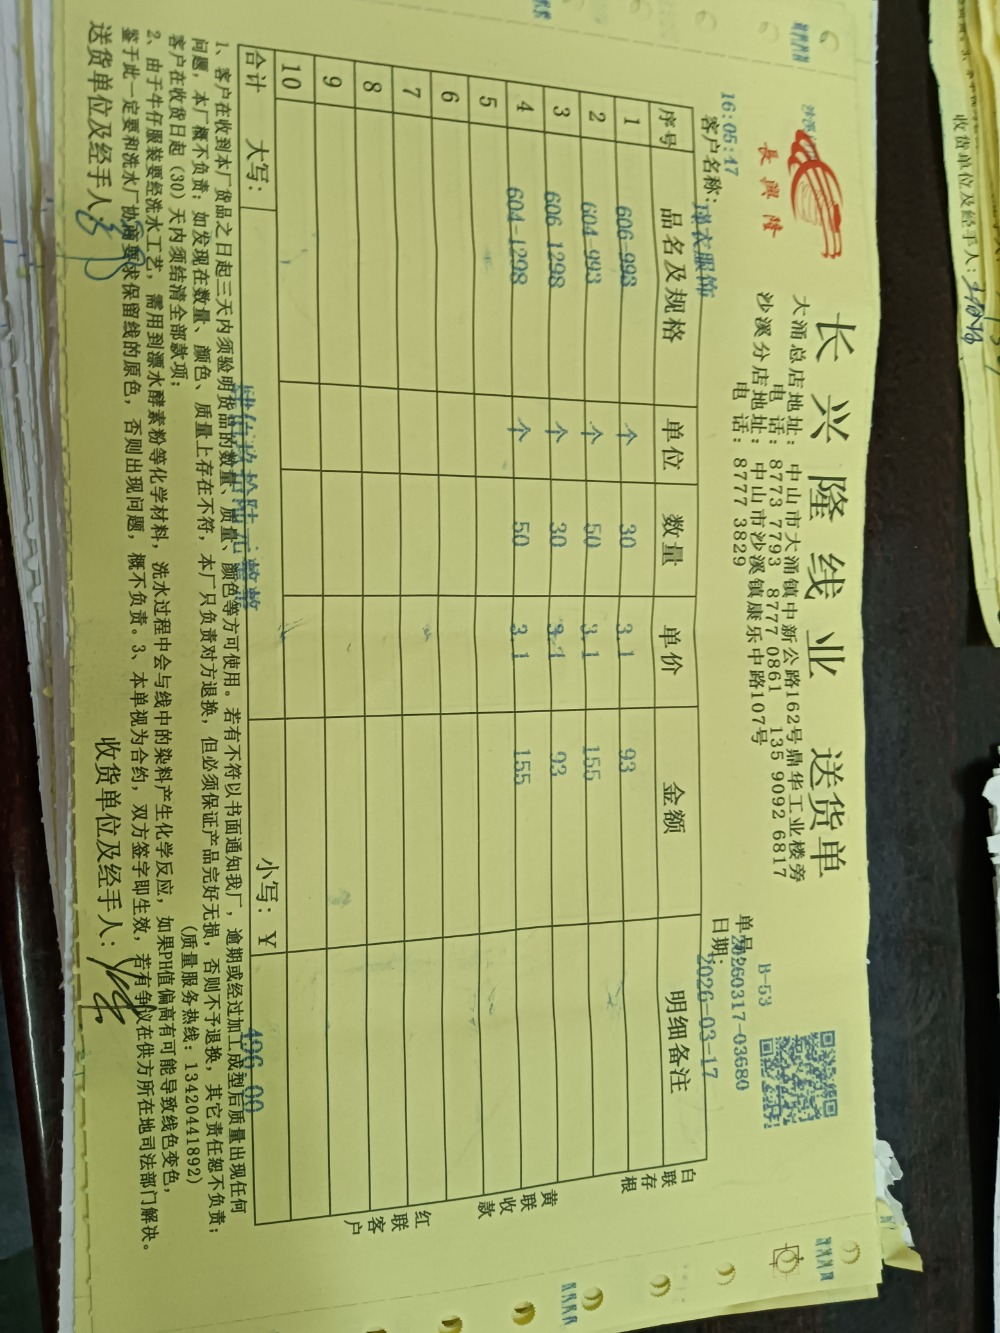 長興隆
长兴隆线业 送货单
大涌总店地址：中山市大涌镇中新公路162号鼎华工业楼旁
电话：8773 7793 8777 0861 135 9092 6817
沙溪分店地址：中山市沙溪镇康乐中路107号
电话：8777 3829
B-53
单号：20260317-03680
16:05:47
客户名称：璋衣服饰
日期：2026-03-17
序号 品名及规格 单位 数量 单价 金额 明细备注
1 606-993 个 30 3.1 93
2 604-993 个 50 3.1 155
3 606 1298 个 30 3.1 93
4 604-1298 个 50 3.1 155
5
6
7
8
9
10
合计 大写：肆佰玖拾陆元整 小写：￥ 496.00
白联存根
黄联收款
红联客户
1、客户在收到本厂货品之日起三天内须验明货品的数量、质量、颜色等方可使用。若有不符以书面通知我厂，逾期或经过加工成型后质量出现任何
问题，本厂概不负责；如发现在数量、颜色、质量上存在不符，本厂只负责对方退换，但必须保证产品完好无损，否则不予退换，其它责任恕不负责；
客户在收货日起（30）天内须结清全部款项；（质量服务热线：13420441892）
2、由于牛仔服装要经洗水工艺，需用到漂水酵素粉等化学材料，洗水过程中会与线中的染料产生化学反应，如果PH值偏高有可能导致线色变色，
鉴于此一定要和洗水厂协商要求保留线的原色，否则出现问题，概不负责。3、本单视为合约，双方签字即生效，若有争议在供方所在地司法部门解决。
送货单位及经手人：
收货单位及经手人：
收货单位及经手人：